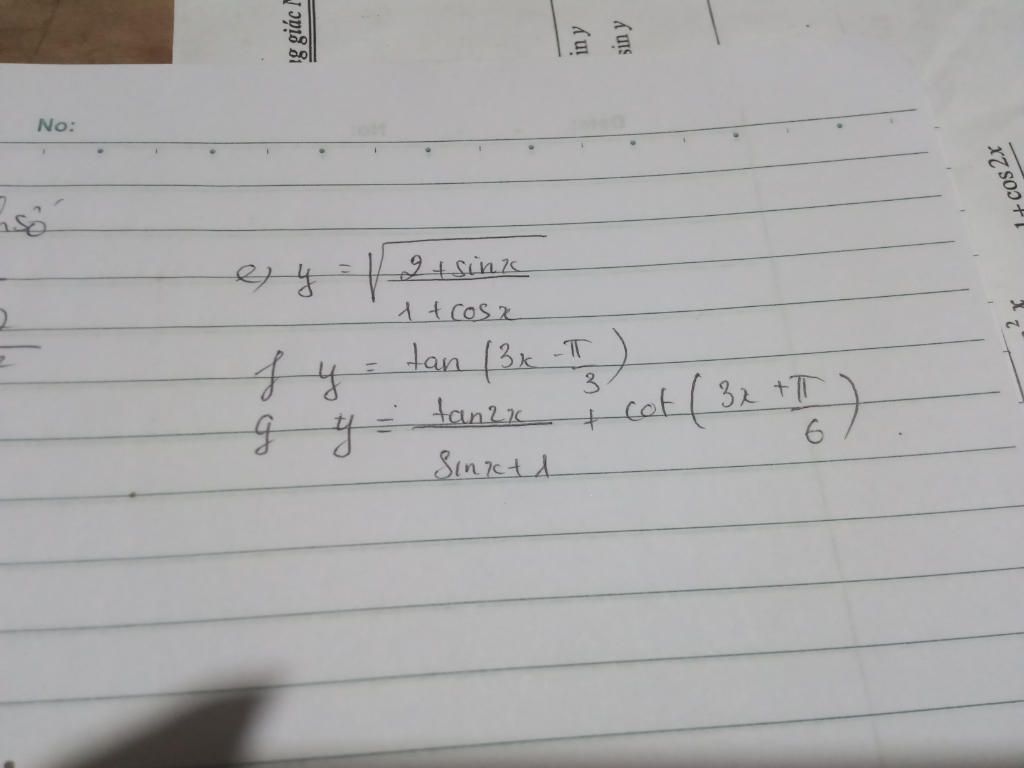 ng giác
in y
sin y
No:
số
1+cos2x
e) y = √(2+sinx
1+cosx
f y = tan (3x - π/3)
g y = tan2x/(sinx+1) + cot (3x + π/6)
2 x